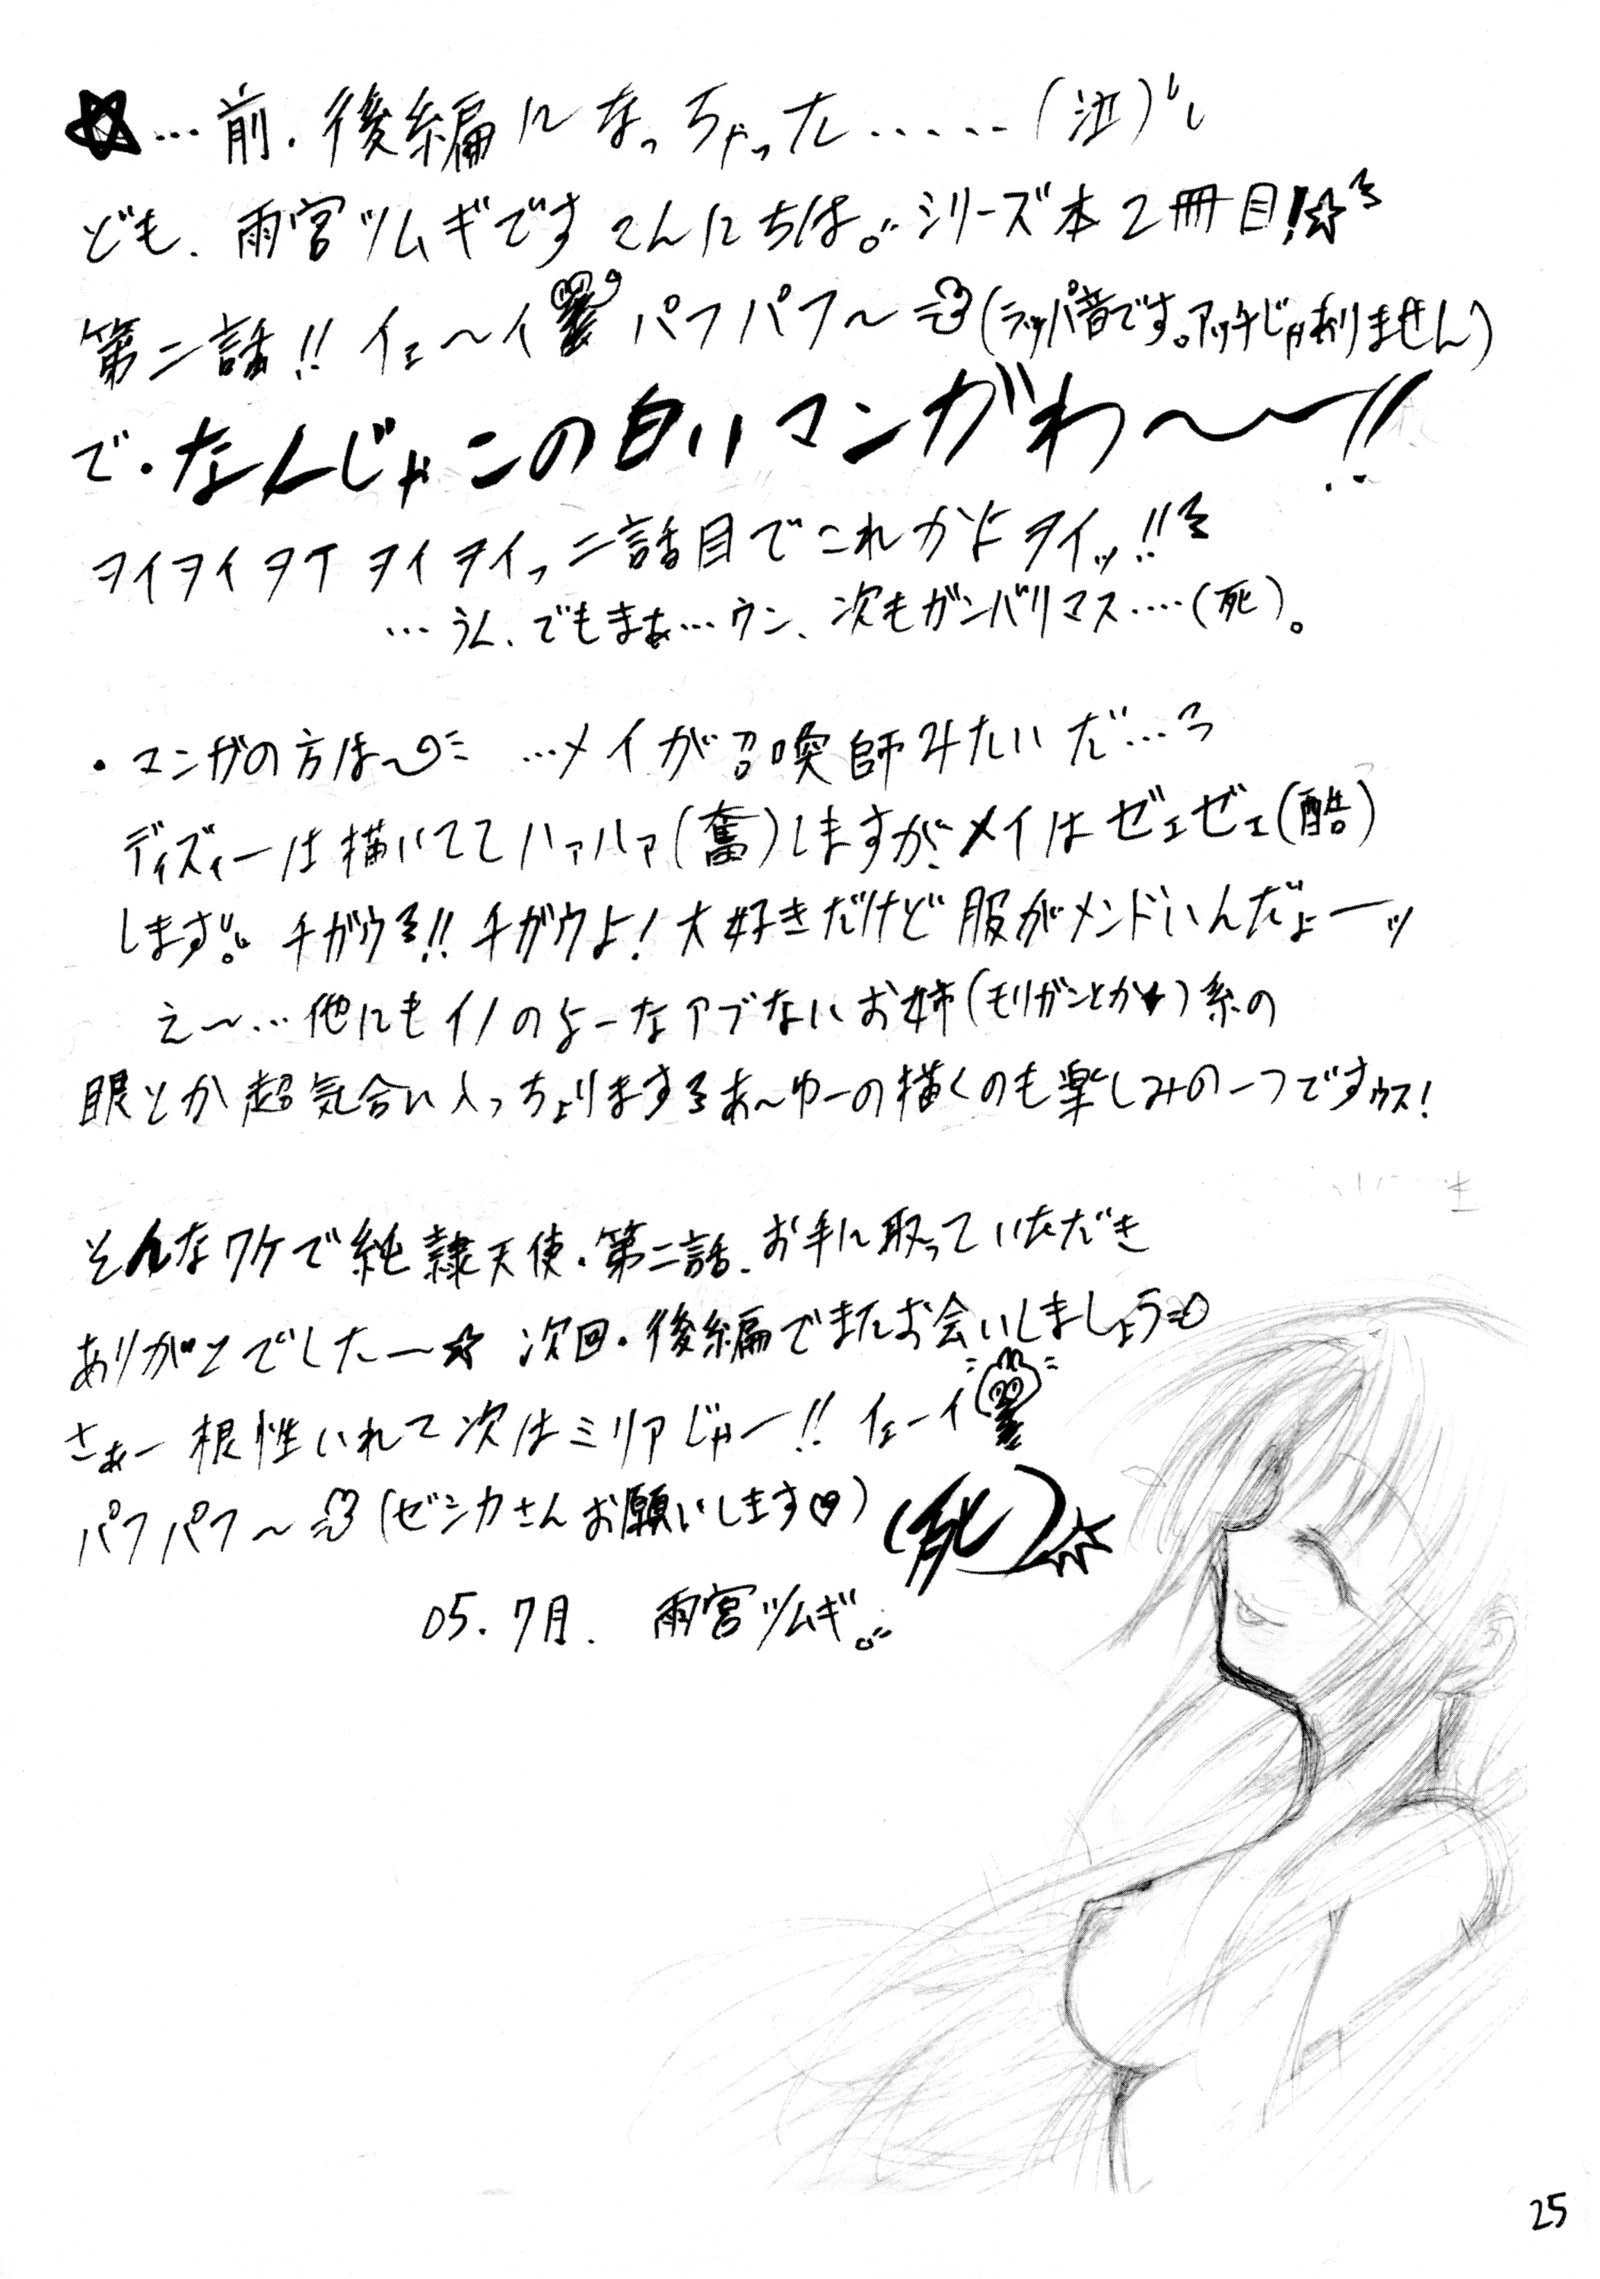 ☆…前．後編になっちゃった……（泣）
ども、雨宮ツムギですこんにちは。シリーズ本2冊目!☆
第二話!!イェ〜イ パフパフ〜（ラッパ音です。アッチじゃありません）
で・なんじゃこの白いマンガわ〜〜!!
ヲイヲイヲイヲイヲイっ二話目でこれかよヲイッ!!
…うん、でもまぁ…ウン、次もガンバリマス‥‥（死）。
・マンガの方は〜 …メイが召喚師みたいだ…
ディズィーは描いててハァハァ（奮）しますが、メイはゼェゼェ（酷）
します。チガウ!!チガウよ！大好きだけど服がメンドいんだよーッ
え〜…他にもイノのよーなアブないお姉（モリガンとか★）系の
眼とか超気合い入っちょりますあ〜ゆーの描くのも楽しみの一つですウス！
そんなワケで純隷天使・第二話、お手に取っていただき
ありがとでしたー☆ 次回・後編でまたお会いしましょう
さぁー根性いれて次はミリアじゃー!! イェーイ
パフパフ〜（ゼシカさんお願いします♡）（死）
05．7月． 雨宮ツムギ。
25